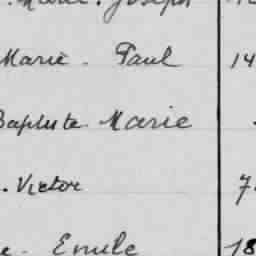 Marie. Joseph
Marie. Paul 14
Baptiste Marie
. Victor 7
e. Emile 18